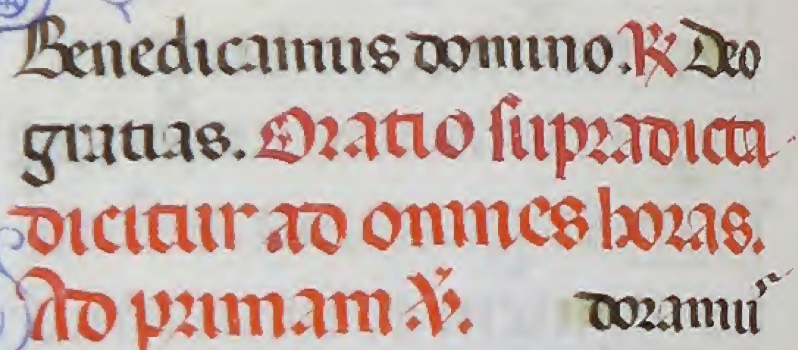 Benedicamus domino. ℟ Deo
gratias. Oratio supradicta
dicitur ad omnes horas.
Ad primam ℣. doramus